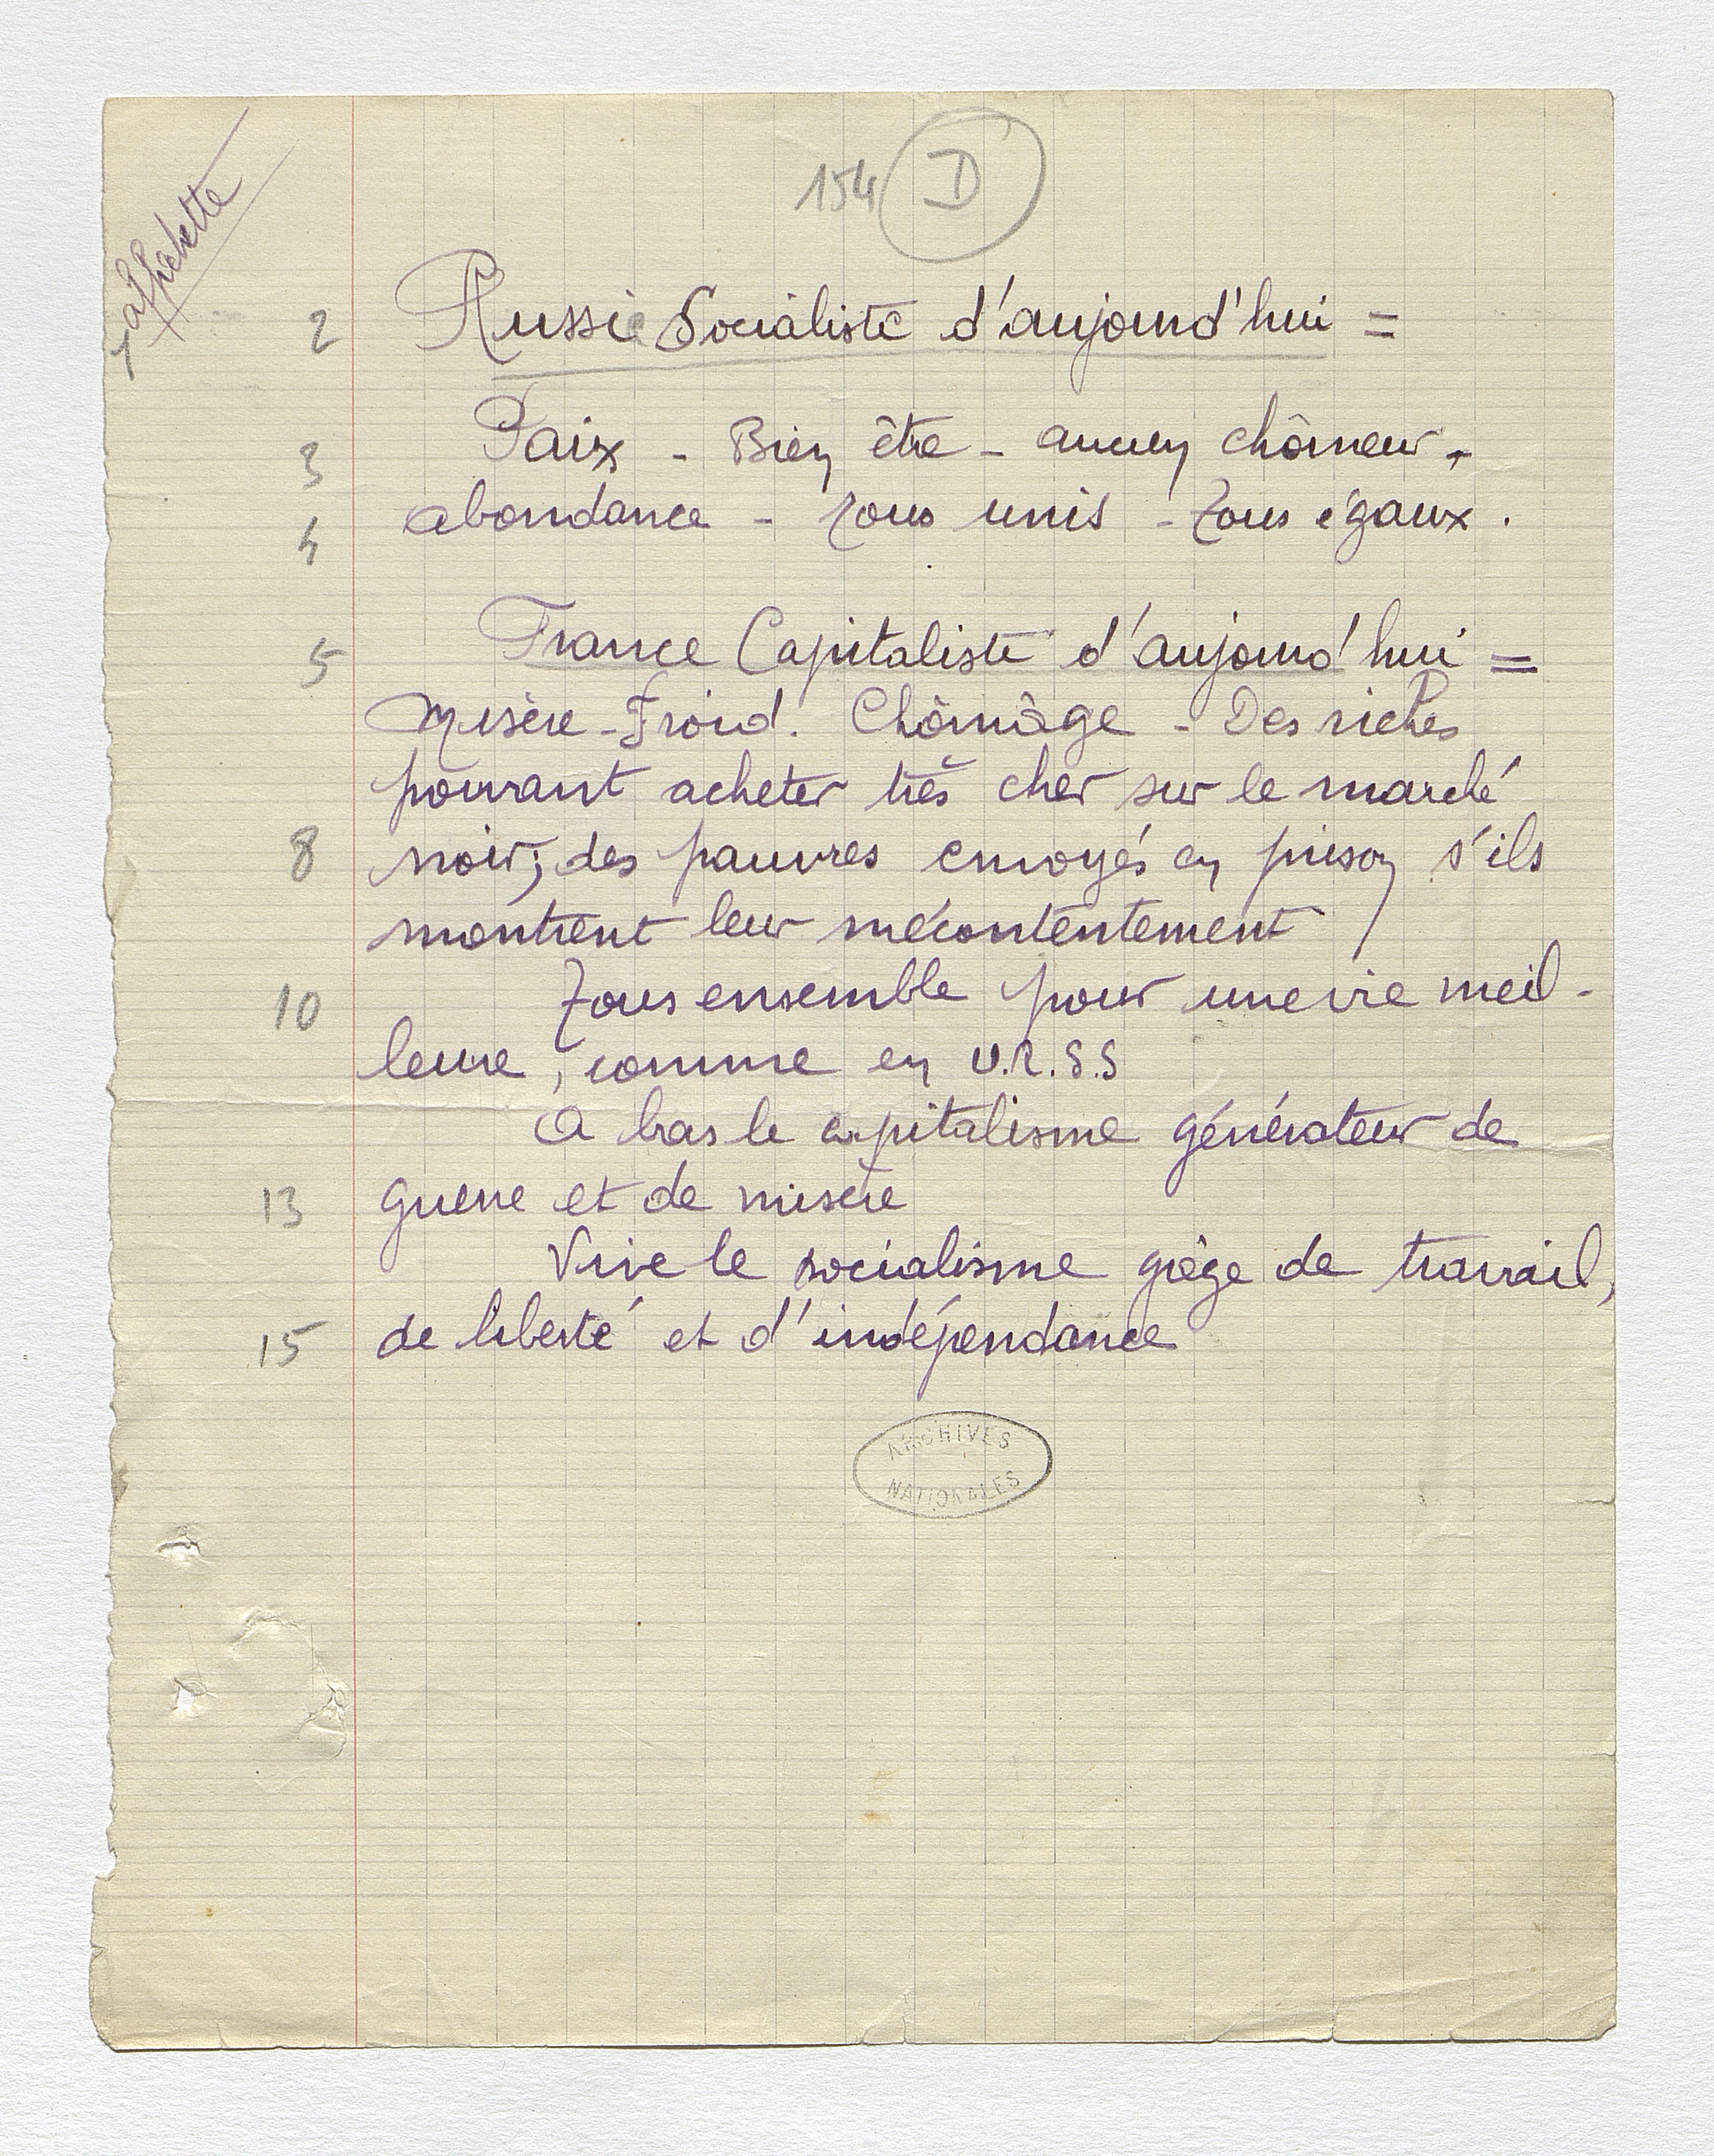 154 D
affichette
2 Russie Socialiste d'aujourd'hui =
3 Paix - Bien être - aucun chômeur -
4 abondance - Tous unis - Tous égaux.
5 France Capitaliste d'aujourd'hui =
Misère - Froid. Chômage - Des riches
pouvant acheter très cher sur le marché
8 noir; des pauvres envoyés en prison s'ils
montrent leur mécontentement
10 Tous ensemble pour une vie meil-
leure, comme en U.R.S.S
A bas le capitalisme générateur de
13 guerre et de misère
Vive le socialisme gage de travail,
15 de liberté et d'indépendance
ARCHIVES
NATIONALES